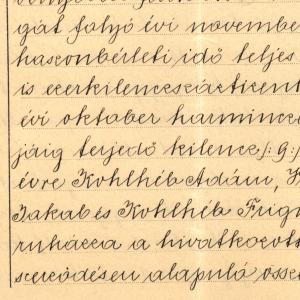 gát folyó évi novembe
haszonbérleti idő teljes
is ezerkilencszáztizent
évi október harmincz
jáig terjedő kilencz /:9:/
évre Kohlhéb Ádám, K
Jakab és Kohlhéb Frigy
ruházza a hivatkozott
szerződésen alapuló össz